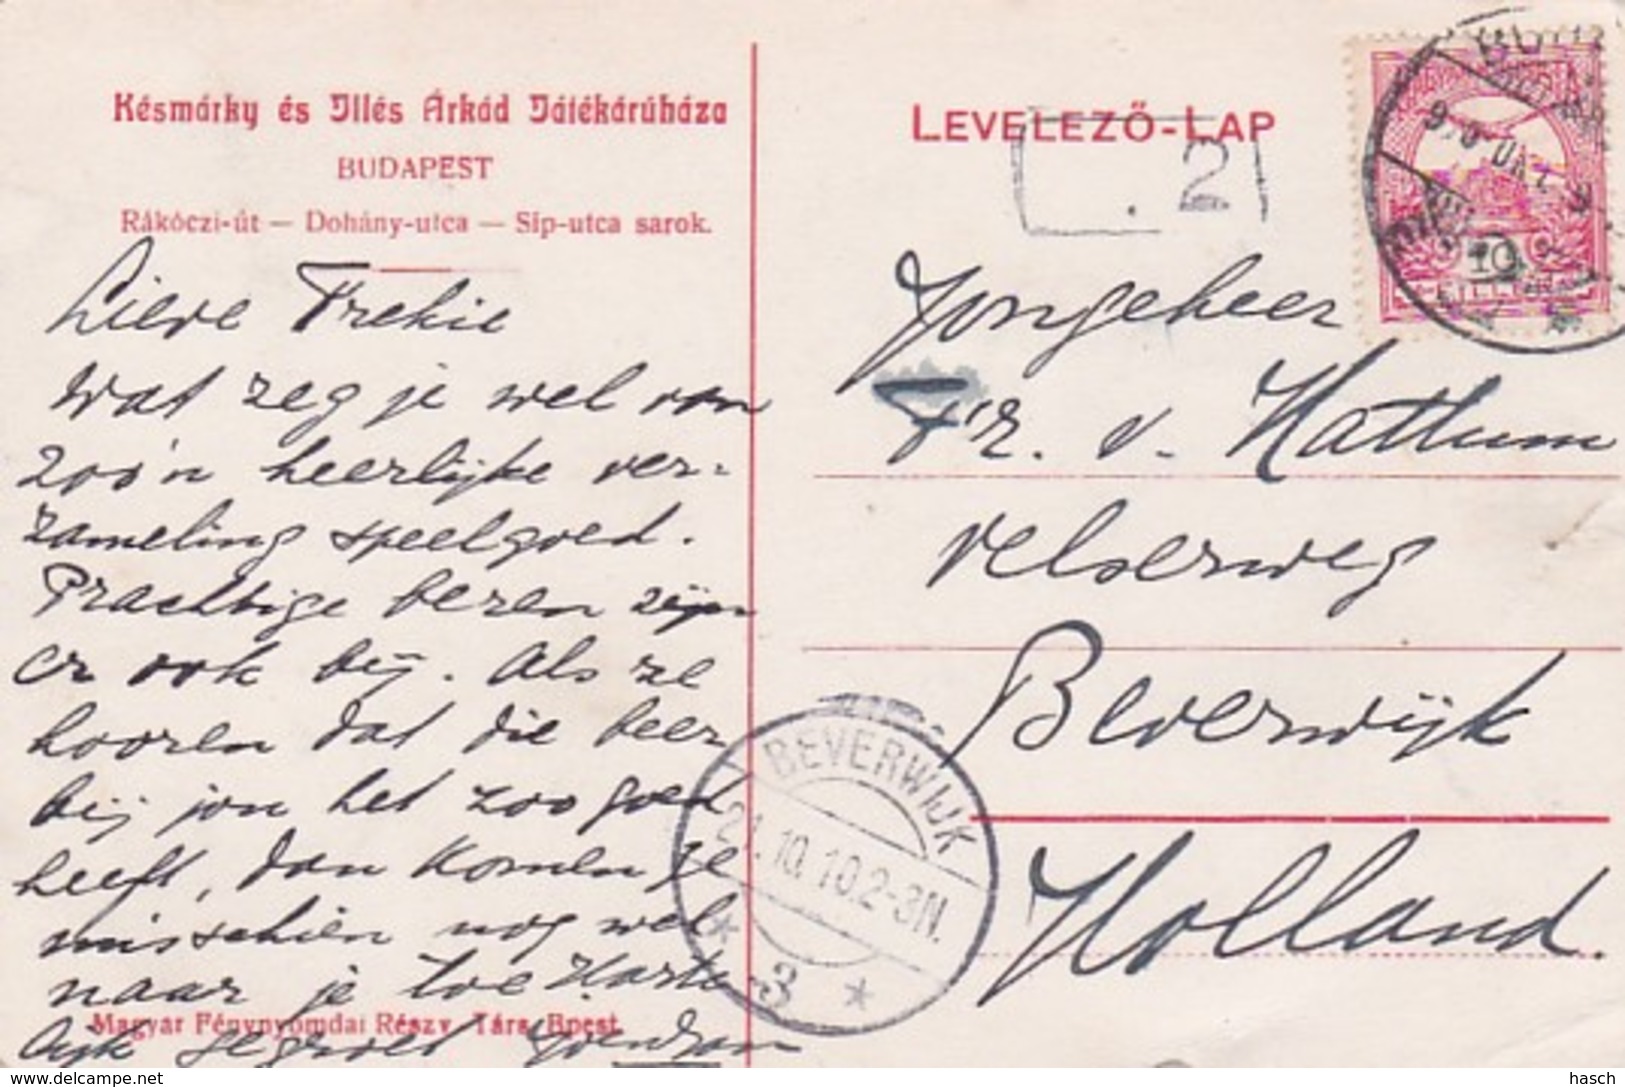 Késmárky és Illés Árkád Játékárúháza
BUDAPEST
Rákóczi-út — Dohány-utca — Síp-utca sarok.
Lieve Frekie
Wat zeg je wel van
zoo'n heerlijke ver-
zameling speelgoed.
Prachtige beren zijn
er ook bij. Als ze
hooren dat die beer
bij jou het zoo goed
heeft, dan komen ze
misschien nog wel
naar je toe Harte
lijk gegroet
Magyar Fénynyomdai Részv. Társ. Bpest.
LEVELEZŐ-LAP
. 2
Jongeheer
Fr. v. Hattum
Velserweg
Beverwijk
Holland.
BEVERWIJK
21.10.10.2-3N.
* 3 *
10
hasch
www.delcampe.net